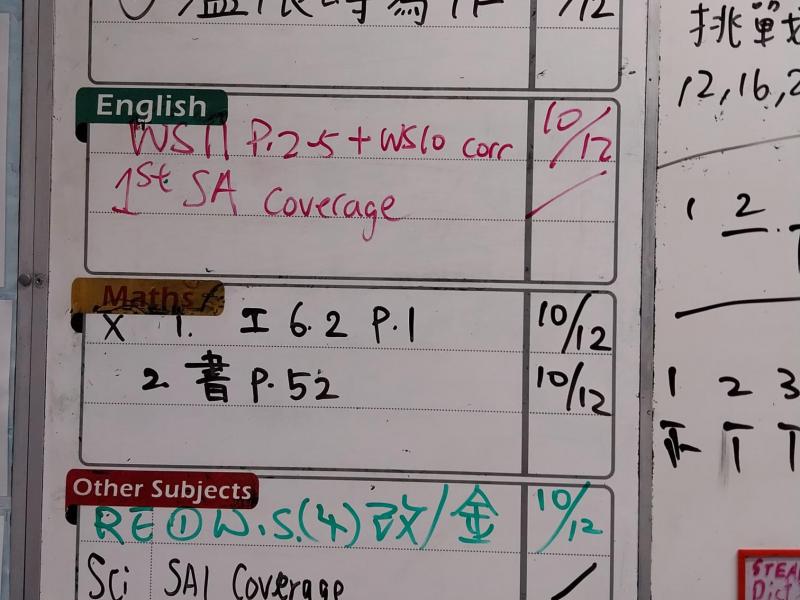 限時寫作 /12
English
WS11 P.2-5 + WS10 corr 10/12
1st SA Coverage
Maths
X 1. 工 6.2 P.1 10/12
2. 書 P.52 10/12
Other Subjects
RE ① W.S.(4) 改/金 10/12
Sci SA1 Coverage
挑戰
12, 16, 2
1 2
1 2 3
STEA
Dict